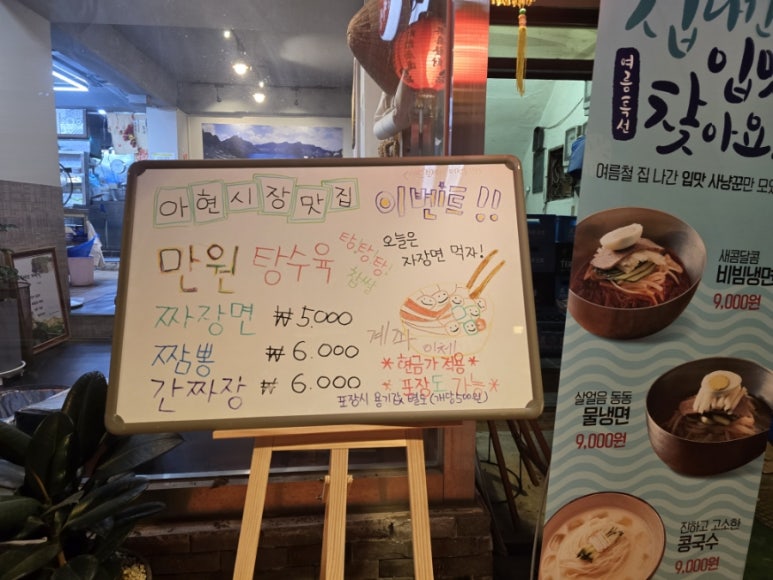 아현시장맛집 이벤트!!
만원 탕수육
탕탕탕!
찹쌀
오늘은
자장면 먹자!
짜장면 ₩5.000
짬뽕 ₩6.000
간짜장 ₩6.000
계좌
이체
*현금가 적용*
*포장도 가능*
포장시 용기값 별도 (개당 500원)
집나간
입맛
찾아요
여름특선
여름철 집 나간 입맛 사냥꾼만
새콤달콤
비빔냉면
9,000원
살얼음 동동
물냉면
9,000원
진하고 고소한
콩국수
9,000원